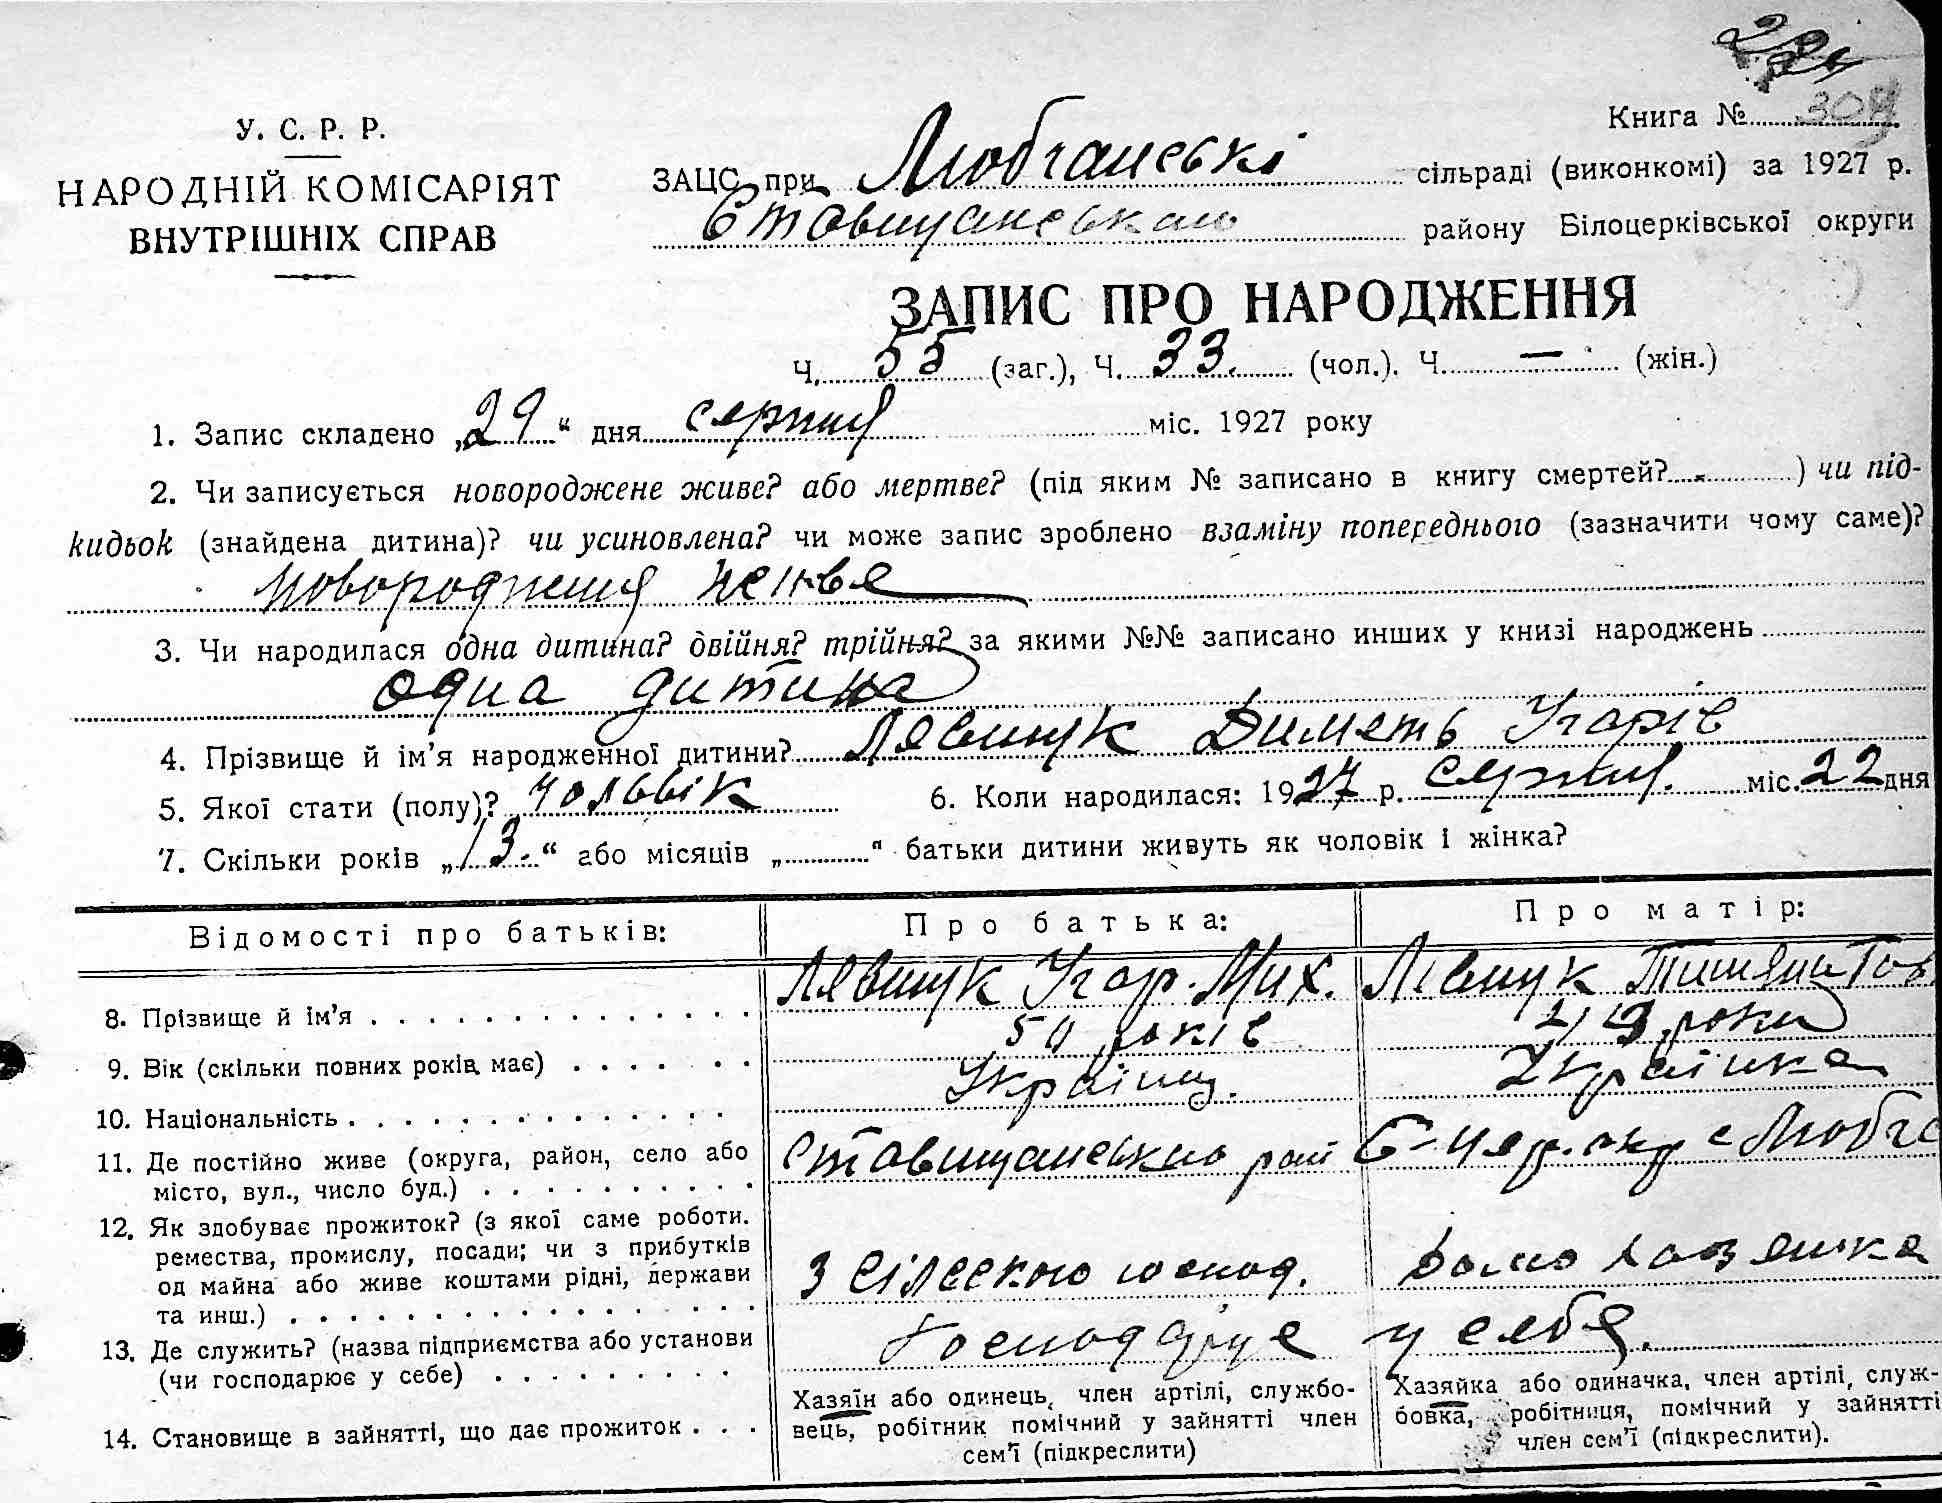 У. С. Р. Р.
НАРОДНІЙ КОМІСАРІЯТ
ВНУТРІШНІХ СПРАВ
Книга № 309
ЗАЦС при Любчанські сільраді (виконкомі) за 1927 р.
Ставищанського району Білоцерківської округи
ЗАПИС ПРО НАРОДЖЕННЯ
Ч. 55 (заг.), Ч. 33. (чол.). Ч. — (жін.)
1. Запис складено „29“ дня серпня міс. 1927 року
2. Чи записується новороджене живе? або мертве? (під яким № записано в книгу смертей? ) чи під-
кидьок (знайдена дитина)? чи усиновлена? чи може запис зроблено взаміну попереднього (зазначити чому саме)?
новородженя
3. Чи народилася одна дитина? двійня? трійня? за якими №№ записано инших у книзі народжень
одна дитина
4. Прізвище й ім'я народженної дитини? Лявшук
5. Якої стати (полу)? чольвік 6. Коли народилася: 1927 р. серпня. міс. 22 дня
7. Скільки років „13.“ або місяців „ “ батьки дитини живуть як чоловік і жінка?
Відомості про батьків: Про батька: Про матір:
8. Прізвище й ім'я Лявшук Мих.
9. Вік (скільки повних років має) років роки
10. Національність Українц. Українка
11. Де постійно живе (округа, район, село або
місто, вул., число буд.) Ставищанського рай Б-Черк. окр с Любча
12. Як здобуває прожиток? (з якої саме роботи.
ремества, промислу, посади; чи з прибутків
од майна або живе коштами рідні, держави
та инш.) З сілского господ. Домо хозяшка
13. Де служить? (назва підприємства або установи
(чи господарює у себе) Господарує у себя.
14. Становище в зайнятті, що дає прожиток
Хазяїн або одинець, член артілі, службо-
вець, робітник помічний у зайнятті член
сем'ї (підкреслити)
Хазяйка або одиначка, член артілі, служ-
бовка, робітниця, помічний у зайнятті
член сем'ї (підкреслити).